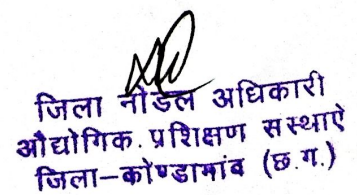 जिला नोडल अधिकारी
औद्योगिक. प्रशिक्षण सस्थाऐ
जिला-कोण्डागांव (छ.ग.)